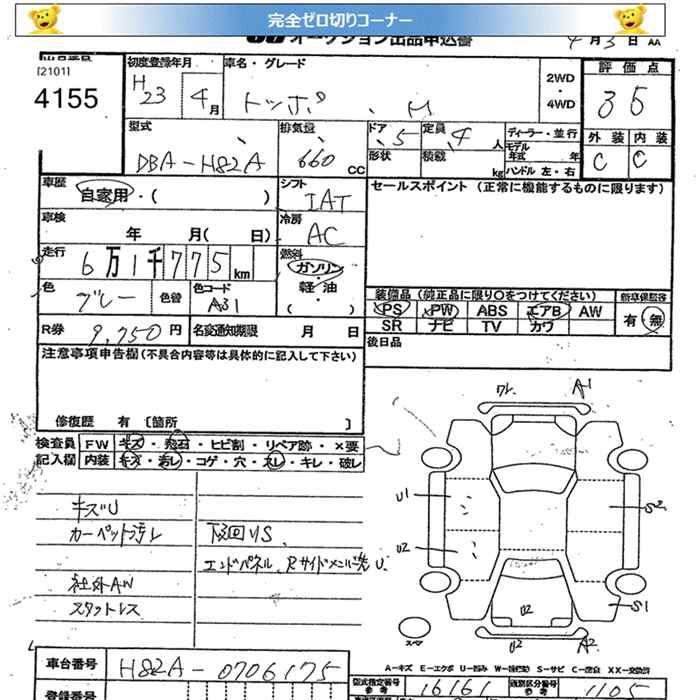 完全ゼロ切りコーナー
オークション出品申込書 4月3日 AA
[2101]
4155
初度登録年月 H23 4月
車名・グレード トッポ . M
2WD・4WD
評価点 3 5
型式 DBA-H82A
排気量 660 CC
ドア 5
形状
定員 4 人
積載 kg
ディーラー・並行
モデル年式 年
ハンドル 左・右
外装 内装
C C
車歴 自家用・( )
シフト IAT
セールスポイント(正常に機能するものに限ります)
車検 年 月( 日)
冷房 AC
走行 6万1千775 km
燃料 ガソリン・軽・油 ( )
色 グレー 色替
色コード A31
装備品(純正品に限り○をつけてください) 新車保証書
PS PW ABS エアB AW 有・無
SR ナビ TV カワ
R券 9,750 円
名変通知期限 月 日
後日品
注意事項申告欄(不具合内容等は具体的に記入して下さい)
修復歴 有 〔箇所 〕
検査員 FW キズ・飛石・ヒビ割・リペア跡・×要
記入欄 内装 キズ・汚レ・コゲ・穴・スレ・キレ・破レ
ワレ A1
キズU
カーペット汚レ
下回りS
エンドパネル、Rサイドメンバー先U
社外AW
スタットレス
U1
U2
S2
S1
U2
スペア
U2 A2
A-キズ E-エクボ U-凹み W-波(板) S-サビ C-腐食 XX-交換済
車台番号 H82A-0706175
型式指定番号 参考 16161
類別区分番号 参考 1105
登録番号